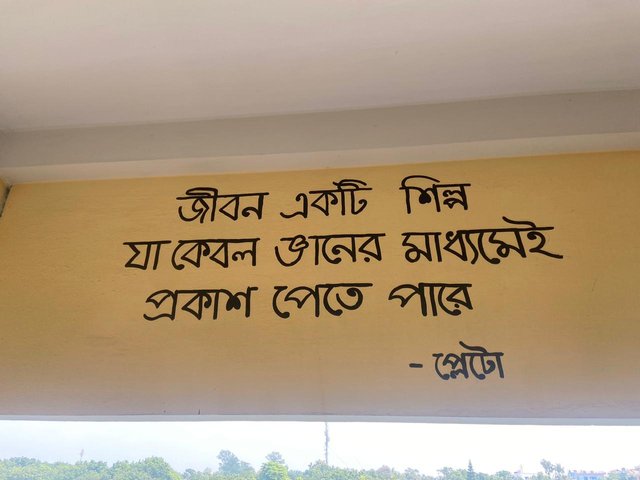 জীবন একটি শিল্প
যা কেবল জ্ঞানের মাধ্যমেই
প্রকাশ পেতে পারে
- প্লেটো